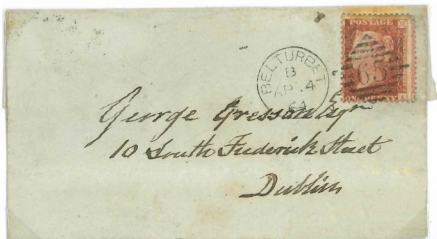 POSTAGE
BELTURBET
B
AP 4
64
George Gressonesqr
10 South Frederick Street
Dublin